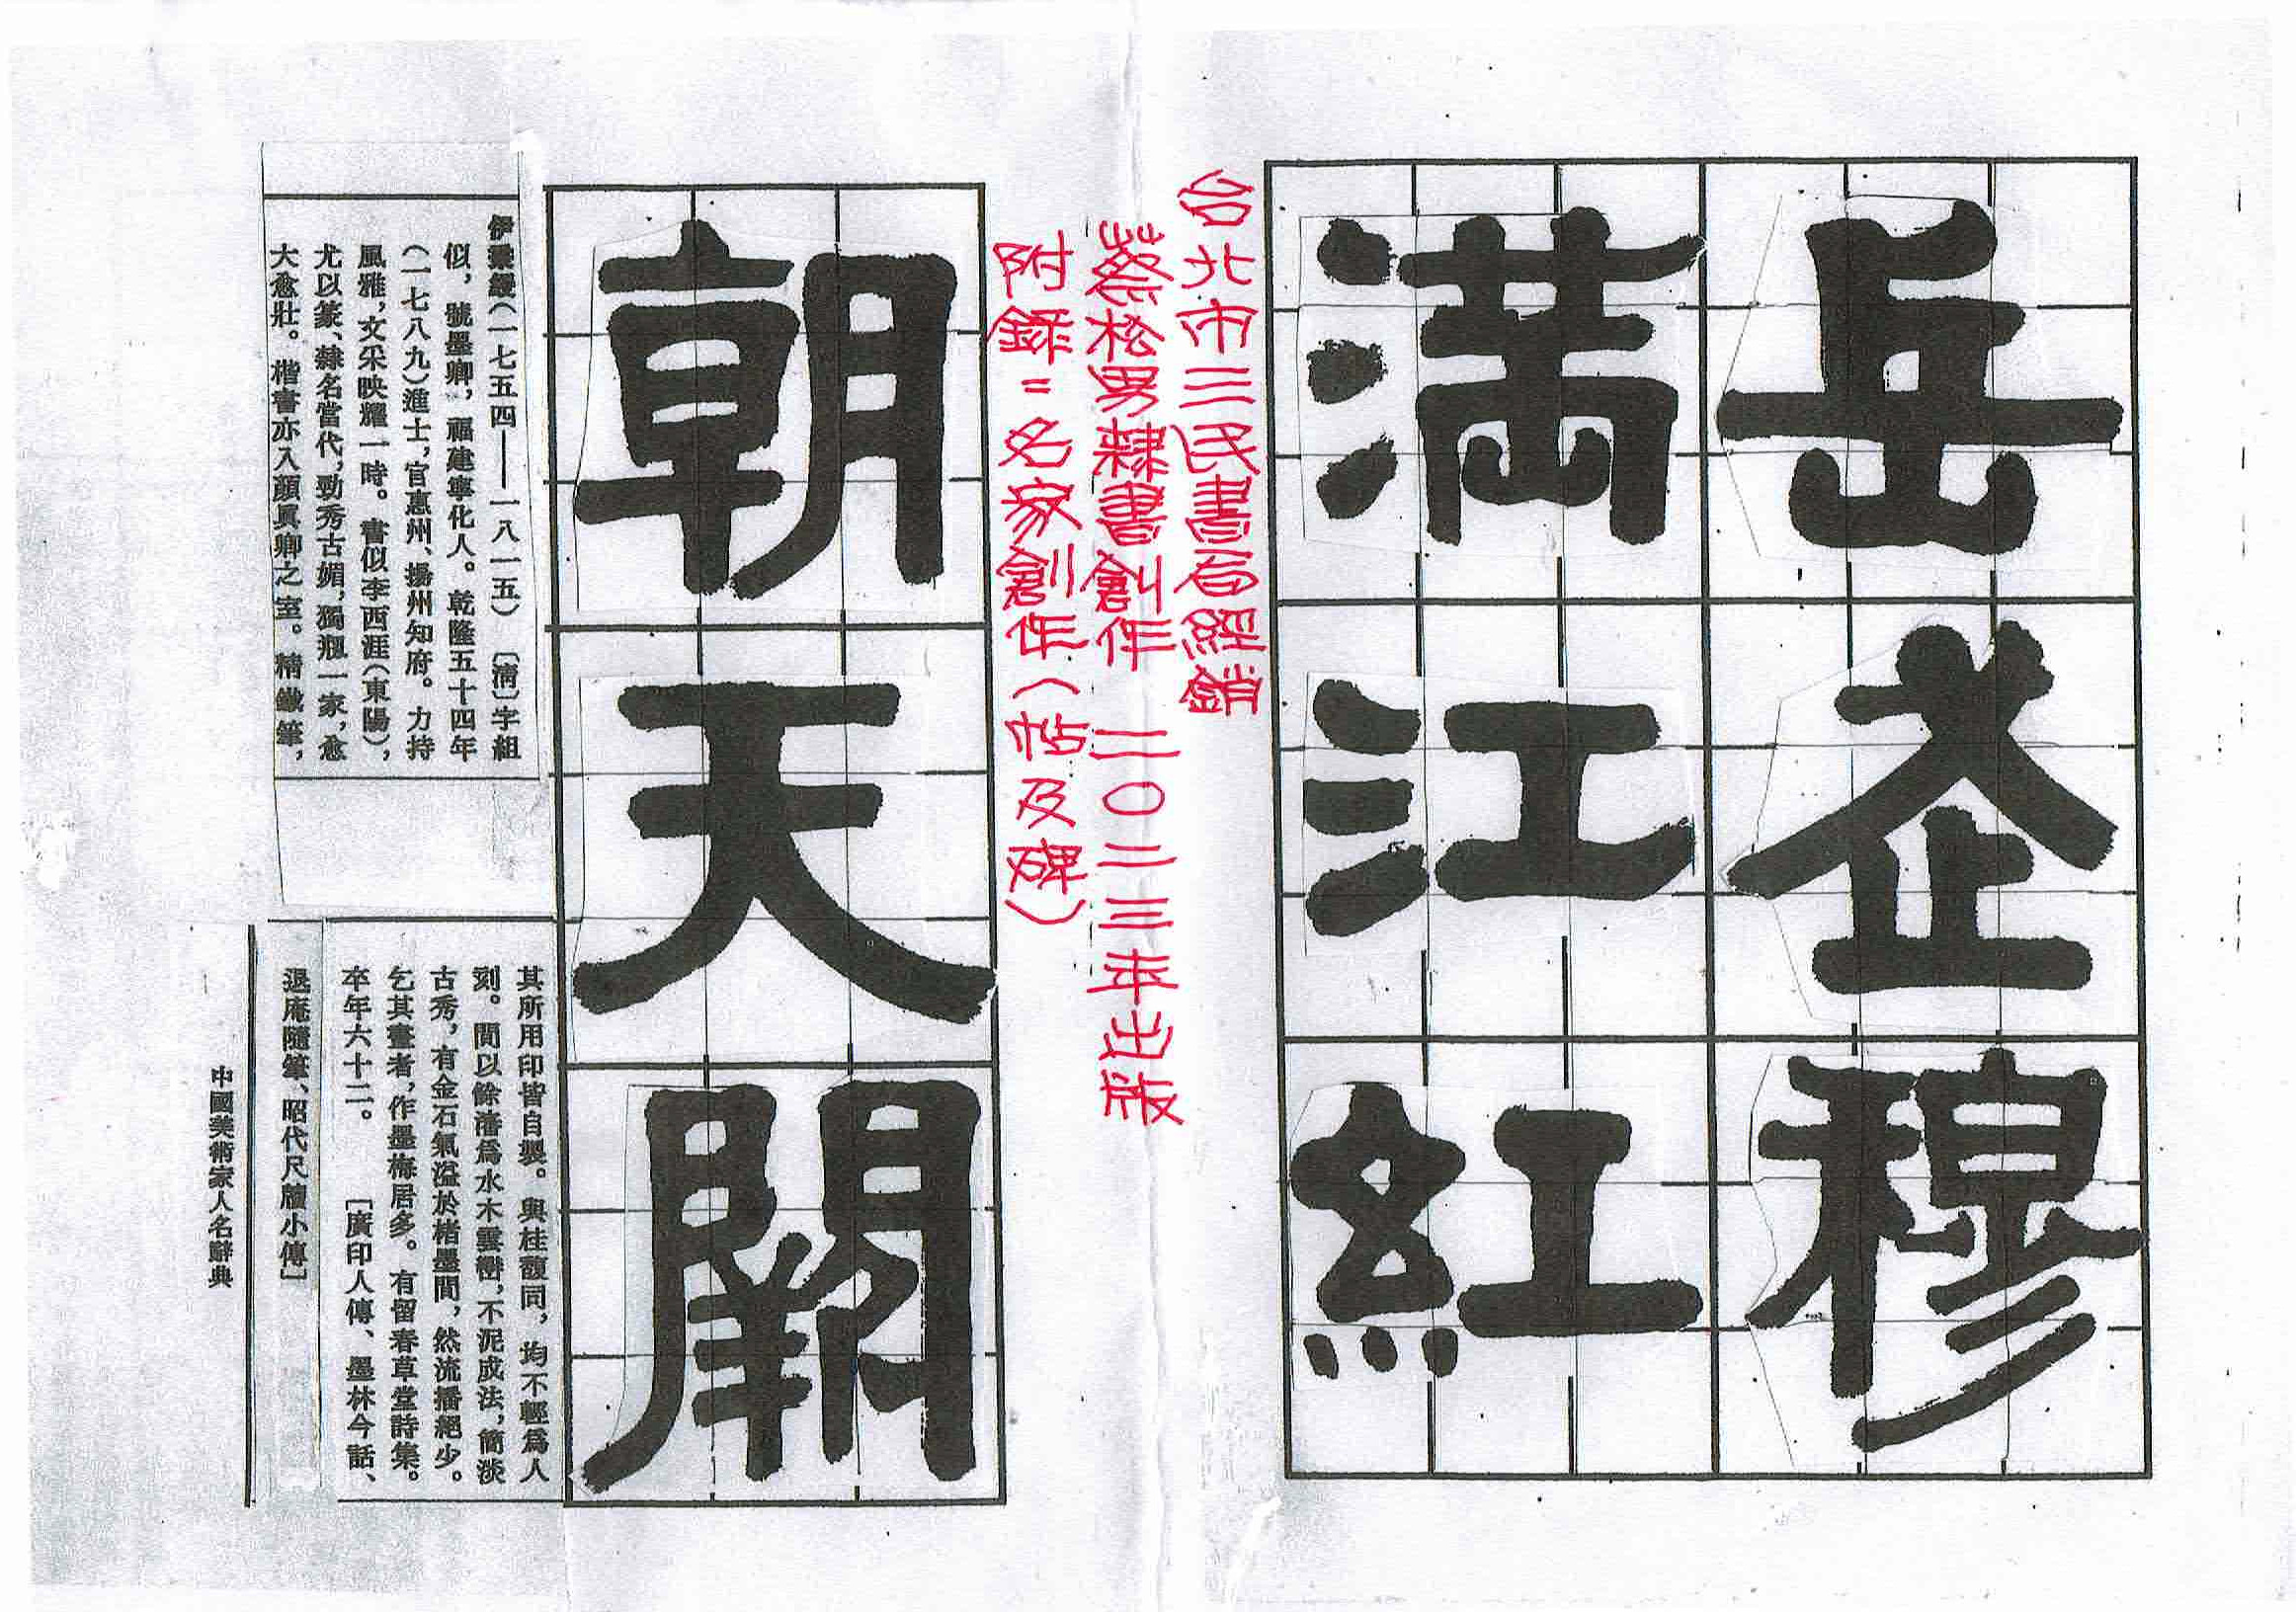 岳武穆
滿江紅
台北市三民書局經銷
蔡松男隸書創作 二〇二三年出版
附錄=名家創作(帖及碑)
朝天闕
伊秉綬(一七五四——一八一五) 〔清〕字組
似,號墨卿,福建寧化人。乾隆五十四年
(一七八九)進士,官惠州、揚州知府。力持
風雅,文采映耀一時。書似李西涯(東陽),
尤以篆、隸名當代,勁秀古媚,獨㧓一家,愈
大愈壯。楷書亦入顏眞卿之室。精鐵筆,
其所用印皆自製。與桂馥同,均不輕爲人
刻。間以餘瀋爲水木雲巒,不泥成法,簡淡
古秀,有金石氣溢於楮墨間,然流播絕少。
乞其畫者,作墨梅居多。有留春草堂詩集。
卒年六十二。 〔廣印人傳、墨林今話、
退庵隨筆、昭代尺牘小傳〕
中國美術家人名辭典